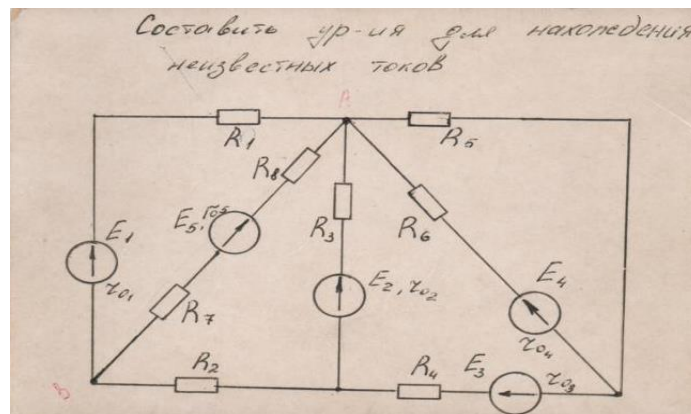 Составить ур-ия для нахождения
неизвестных токов
A
R1
R5
R8
E5, r05
R3
R6
E1
r01
R7
E2, r02
E4
r04
B
R2
R4
E3
r03